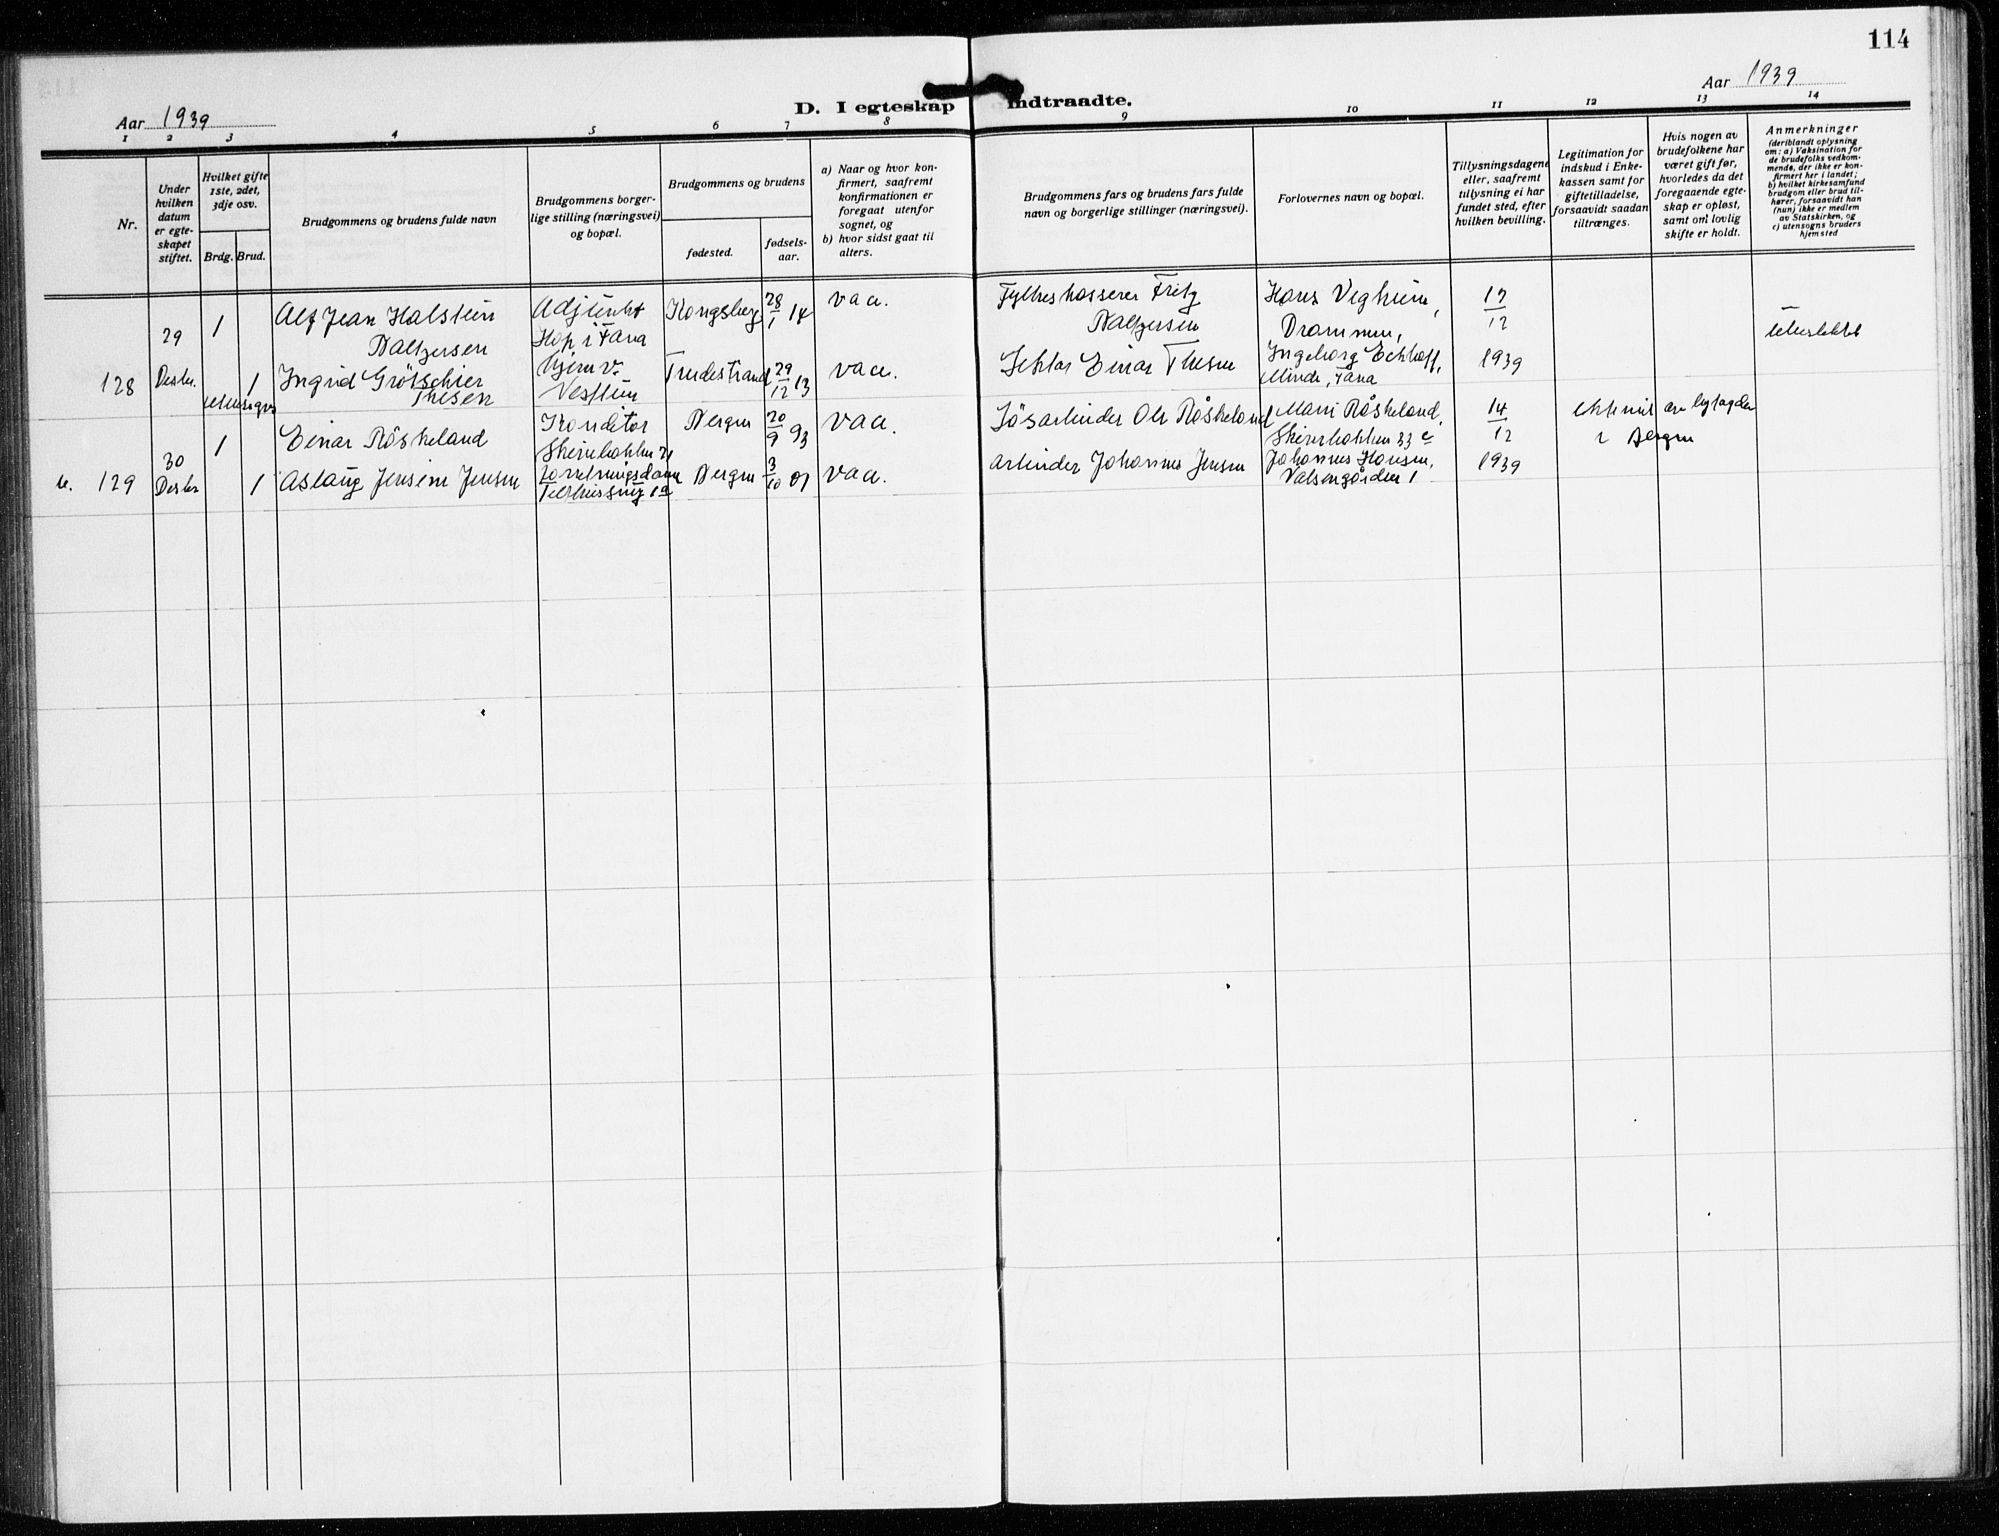 114
Aar 1939
D. I egteskap indtraadte.
Aar 1939
1 2 3 4 5 6 7 8 9 10 11 12 13 14
Nr.
Under
hvilken
datum
er egte-
skapet
stiftet.
Hvilket gifte
1ste, 2det,
3dje osv.
Brdg. Brud.
Brudgommens og brudens fulde navn
Brudgommens borger-
lige stilling (næringsvei)
og bopæl.
Brudgommens og brudens
fødested.
fødsels-
aar.
a) Naar og hvor kon-
firmert, saafremt
konfirmationen er
foregaat utenfor
sognet, og
b) hvor sidst gaat til
alters.
Brudgommens fars og brudens fars fulde
navn og borgerlige stillinger (næringsvei).
Forlovernes navn og bopæl.
Tillysningsdagene
eller, saafremt
tillysning ei har
fundet sted, efter
hvilken bevilling.
Legitimation for
indskud i Enke-
kassen samt for
giftetilladelse,
forsaavidt saadan
tiltrænges.
Hvis nogen av
brudefolkene har
været gift før,
hvorledes da det
foregaaende egte-
skap er opløst,
samt om lovlig
skifte er holdt.
Anmerkninger
(deriblandt oplysning
om: a) Vaksination for
de brudefolks vedkom-
mende, der ikke er kon-
firmert her i landet;
b) hvilket kirkesamfund
brudgom eller brud til-
hører, forsaavidt han
(hun) ikke er medlem
av Statskirken, og
c) utensogns bruders
hjemsted
128
29
Desbr.
1
1
utensogns
Alf Jean Halstein
Baltzersen
Ingrid Grötschier
Thesen
Adjunkt
Hop i Fana
Hjem v.
Kongsberg
28/1 14
29/12 13
vaa.
vaa.
Fylkeskasserer Fritz
Baltzersen
Lektor Einar Thesen
Hans Vegheim,
Drammen,
Ingeborg Eckhoff,
Minde, Fana
17/12
1939
129
30
Desbr
1
1
Einar Röskeland
Aslaug Jensine Jensen
Konditor
Skivebakken 21
Forretningsdame
Bergen
Bergen
20/9 93
3/10 01
vaa.
vaa.
Løsarbeider Ole Røskeland
Arbeider Johannes Jensen
Mari Røskeland,
Skivebakken 33 c
Johannes Hansen,
14/12
1939
i Bergen